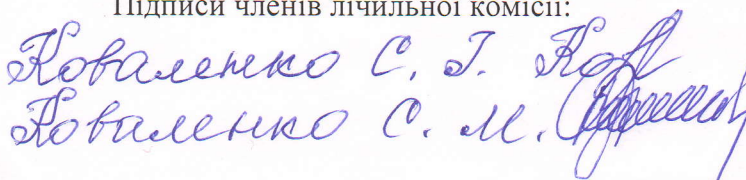 Підписи членів лічильної комісії:
Коваленко С. Г. Ков
Коваленко С. М.